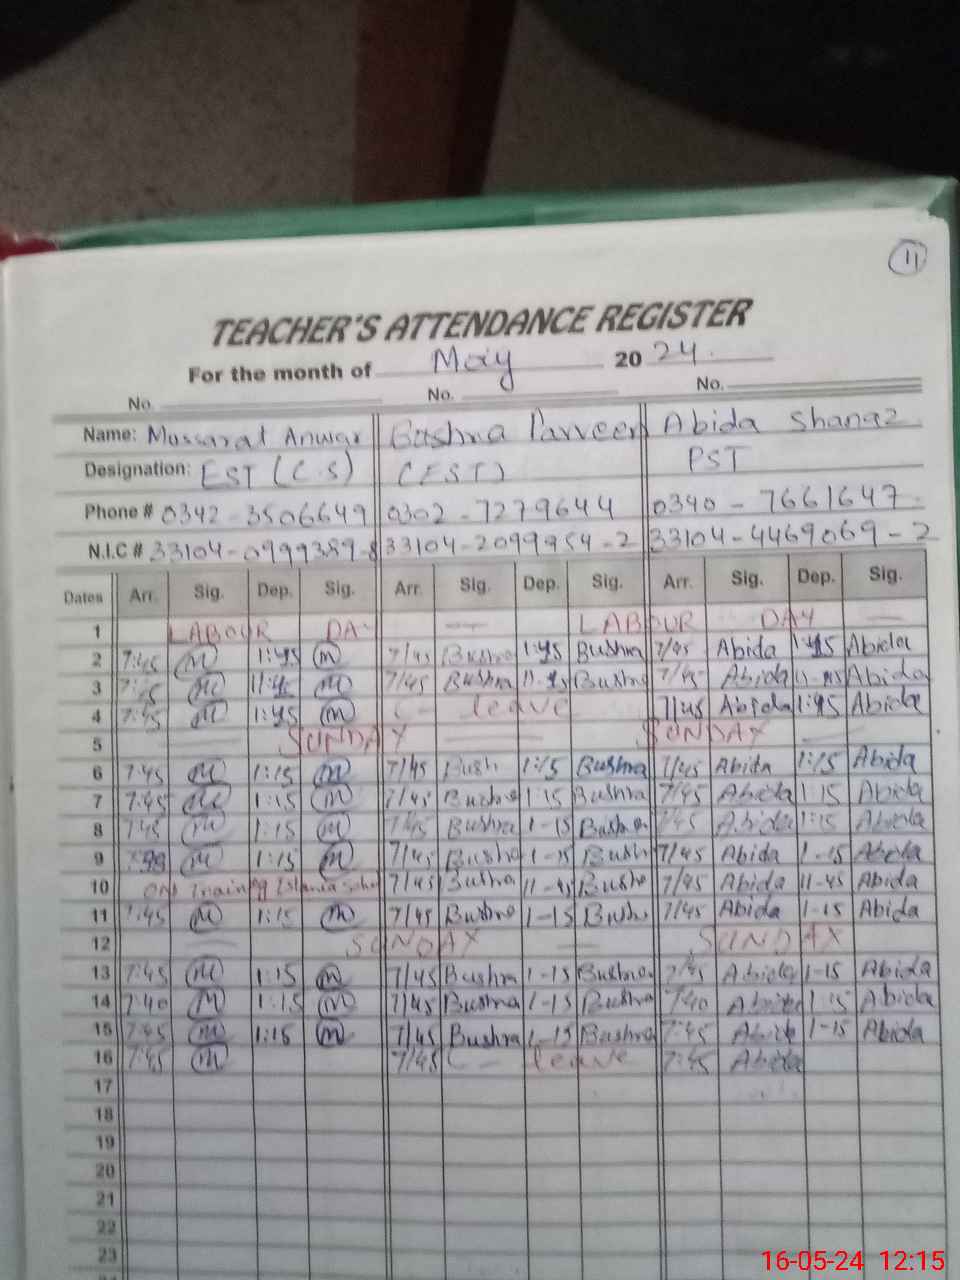 11
TEACHER'S ATTENDANCE REGISTER
For the month of May 2024.
No. No. No.
Name: Mussarat Anwar Bushra Parveen Abida Shanaz
Designation: EST (C.S) (EST) PST
Phone # 0342-3506649 0302-7279644 0340-7661647
N.I.C # 33104-0999389-8 33104-2099954-2 33104-4469069-2
Dates Arr. Sig. Dep. Sig. Arr. Sig. Dep. Sig. Arr. Sig. Dep. Sig.
1 LABOUR DAY — LABOUR DAY —
2 7:45 m 1:45 m 7/45 Bushra 1:45 Bushra 7/45 Abida 1:45 Abida
3 7:45 m 11:45 m 7/45 Bushra 11-45 Bushra 7/45 Abida 11-45 Abida
4 7:45 m 1:45 m leave 7/45 Abida 1:45 Abida
5 — SUNDAY — SUNDAY —
6 7:45 m 1:15 m 7/45 Bush 1:15 Bushra 7/45 Abida 1:15 Abida
7 7:45 m 1:15 m 7/45 Bushra 1:15 Bushra 7/45 Abida 1:15 Abida
8 7:45 m 1:15 m 7/45 Bushra 1-15 Bushra 7/45 Abida 1:15 Abida
9 m 1:15 m 7/45 Bushra 1-15 Bush 7/45 Abida 1-15 Abida
10 ON Training 7/45 Bushra 11-45 Bushra 7/45 Abida 11-45 Abida
11 7:45 m 1:15 m 7/45 Bushra 1-15 Bush 7/45 Abida 1-15 Abida
12 — SUNDAY — SUNDAY
13 7:45 m 1:15 m 7/45 Bushra 1-15 Bushra 7/45 Abida 1-15 Abida
14 7:40 M 1:15 m 7/45 Bushra 1-15 Bushra 7/40 Abida 1:15 Abida
15 7:45 m 1:15 m 7/45 Bushra 1-15 Bushra 7:45 Abida 1-15 Abida
16 7:45 m 7/45 leave 7:45 Abida
17
18
19
20
21
22
23
16-05-24 12:15